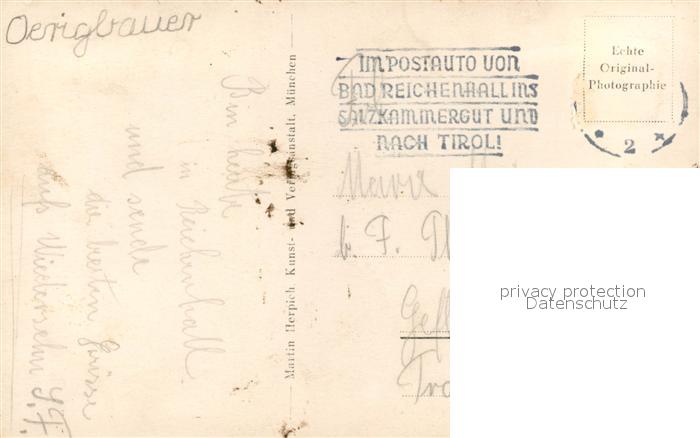 Oerigbauer
Bin heute
in Reichenhall.
und sende
die besten Grüsse
Auf Wiedersehn
Martin Herpich, Kunst- und Verlagsanstalt, München
IM POSTAUTO VON
BAD REICHENHALL INS
SALZKAMMERGUT UND
NACH TIROL!
Echte
Original-
Photographie
2
Frl.
Marie
b. F.
privacy protection
Datenschutz